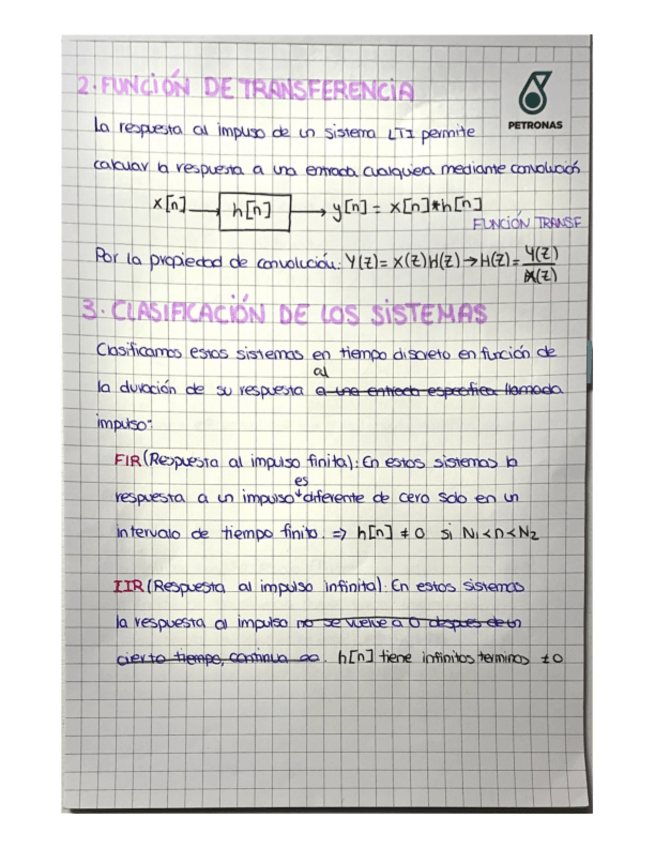 2. FUNCIÓN DE TRANSFERENCIA
PETRONAS
La respuesta al impulso de un sistema LTI permite
calcular la respuesta a una entrada cualquiera mediante convolución
x[n] → h[n] → y[n] = x[n]*h[n]
FUNCIÓN TRANSF
Por la propiedad de convolución: Y(z) = X(z)H(z) → H(z) = Y(z)/X(z)
3. CLASIFICACIÓN DE LOS SISTEMAS
Clasificamos estos sistemas en tiempo discreto en función de
al
la duración de su respuesta a una entrada especifica llamada
impulso:
FIR (Respuesta al impulso finita): En estos sistemas la
es
respuesta a un impulso diferente de cero solo en un
intervalo de tiempo finito. ⇒ h[n] ≠ 0 si N1<n<N2
IIR (Respuesta al impulso infinita): En estos sistemas
la respuesta al impulso no se vuelve a 0 despues de un
cierto tiempo, continua ∞. h[n] tiene infinitos terminos ≠0